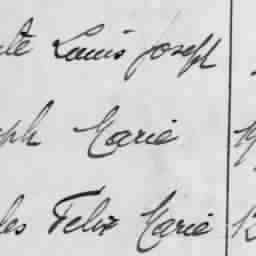 Louis Joseph
ph Marie
les Felix Marie